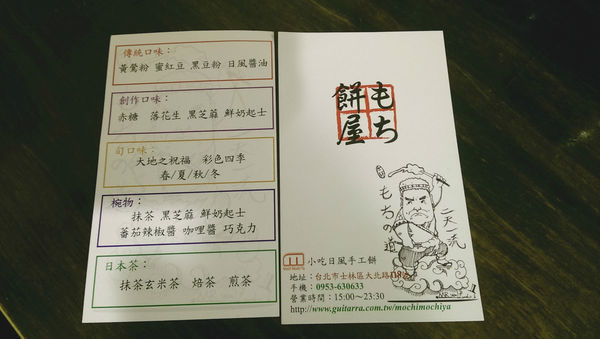 傳統口味：
黃鶯粉 蜜紅豆 黑豆粉 日風醬油
創作口味：
赤糖 落花生 黑芝蔴 鮮奶起士
旬口味：
大地之祝福 彩色四季
春/夏/秋/冬
椀物：
抹茶 黑芝蔴 鮮奶起士
蕃茄辣椒醬 咖哩醬 巧克力
日本茶：
抹茶玄米茶 焙茶 煎茶
もち
餅屋
もちの道
二天一流
小吃日風手工餅
地址：台北市士林區大北路
手機：0953-630633
營業時間：15:00~23:30
http://www.guitarra.com.tw/mochimochiya